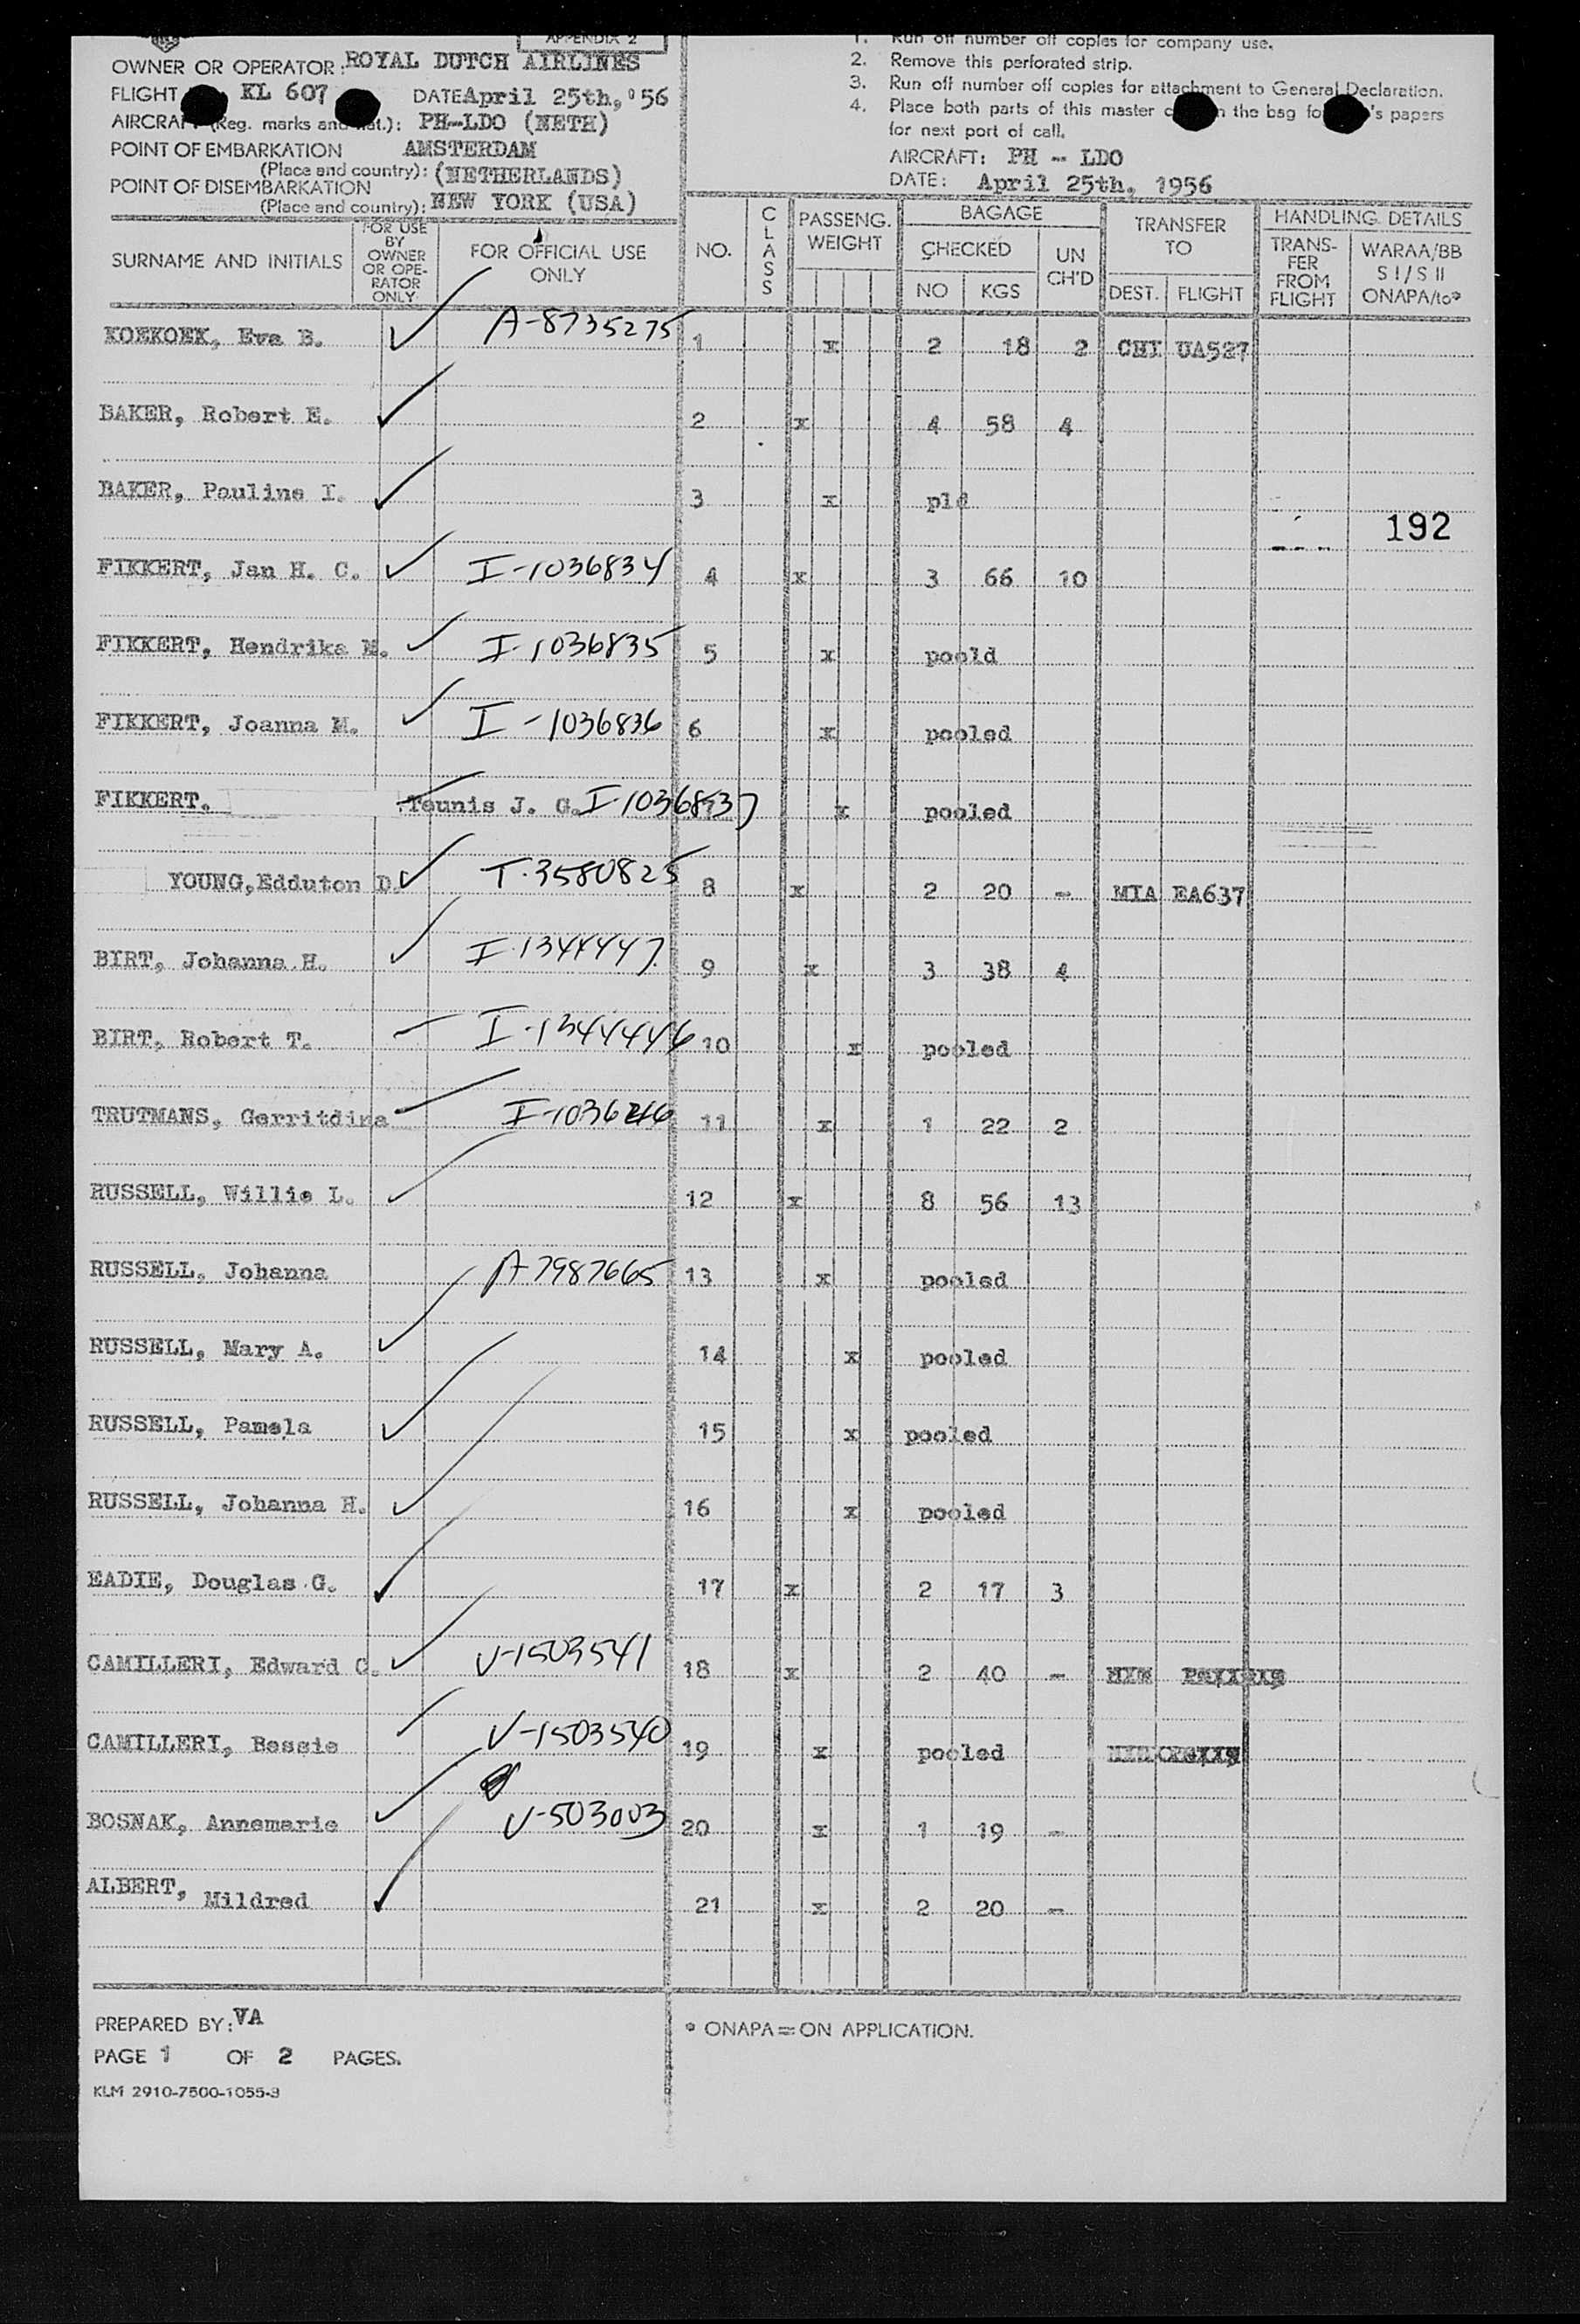 APPENDIX 2
OWNER OR OPERATOR: ROYAL DUTCH AIRLINES
FLIGHT KL 607 DATE April 25th, '56
AIRCRAFT (Reg. marks and nat.): PH-LDO (NETH)
POINT OF EMBARKATION AMSTERDAM
(Place and country): (NETHERLANDS)
POINT OF DISEMBARKATION
(Place and country): NEW YORK (USA)
1. Run off number off copies for company use.
2. Remove this perforated strip.
3. Run off number off copies for attachment to General Declaration.
4. Place both parts of this master in the bag for 's papers
for next port of call.
AIRCRAFT: PH - LDO
DATE: April 25th, 1956
SURNAME AND INITIALS
FOR USE BY OWNER OR OPE-RATOR ONLY
FOR OFFICIAL USE ONLY
NO.
CLASS
PASSENG. WEIGHT
BAGAGE
CHECKED
NO KGS
UN CH'D
TRANSFER TO
DEST. FLIGHT
HANDLING DETAILS
TRANS-FER FROM FLIGHT
WARAA/BB S I/S II ONAPA/to*
KOEKOEK, Eva B. A-8735275 1 x 2 18 2 CHI UA527
BAKER, Robert E. 2 x 4 58 4
BAKER, Pauline I. 3 x pld
192
FIKKERT, Jan H. C. I-1036834 4 x 3 66 10
FIKKERT, Hendrika M. I-1036835 5 x poold
FIKKERT, Joanna M. I-1036836 6 x pooled
FIKKERT. Teunis J. G. I-1036837 7 x pooled
YOUNG, Edduton D. T-3580825 8 x 2 20 - MIA EA637
BIRT, Johanna H. I-1344447 9 x 3 38 4
BIRT, Robert T. I-1344446 10 x pooled
TRUTMANS, Gerritdina 11 x 1 22 2
RUSSELL, Willie L. 12 x 8 56 13
RUSSELL, Johanna A-7987665 13 x pooled
RUSSELL, Mary A. 14 x pooled
RUSSELL, Pamela 15 x pooled
RUSSELL, Johanna H. 16 x pooled
EADIE, Douglas G. 17 x 2 17 3
CAMILLERI, Edward C. V-1503541 18 x 2 40 -
CAMILLERI, Bessie V-1503540 19 x pooled
BOSNAK, Annemarie V-503003 20 x 1 19 -
ALBERT, Mildred 21 x 2 20 -
PREPARED BY: VA
PAGE 1 OF 2 PAGES.
KLM 2910-7500-1055-3
* ONAPA = ON APPLICATION.